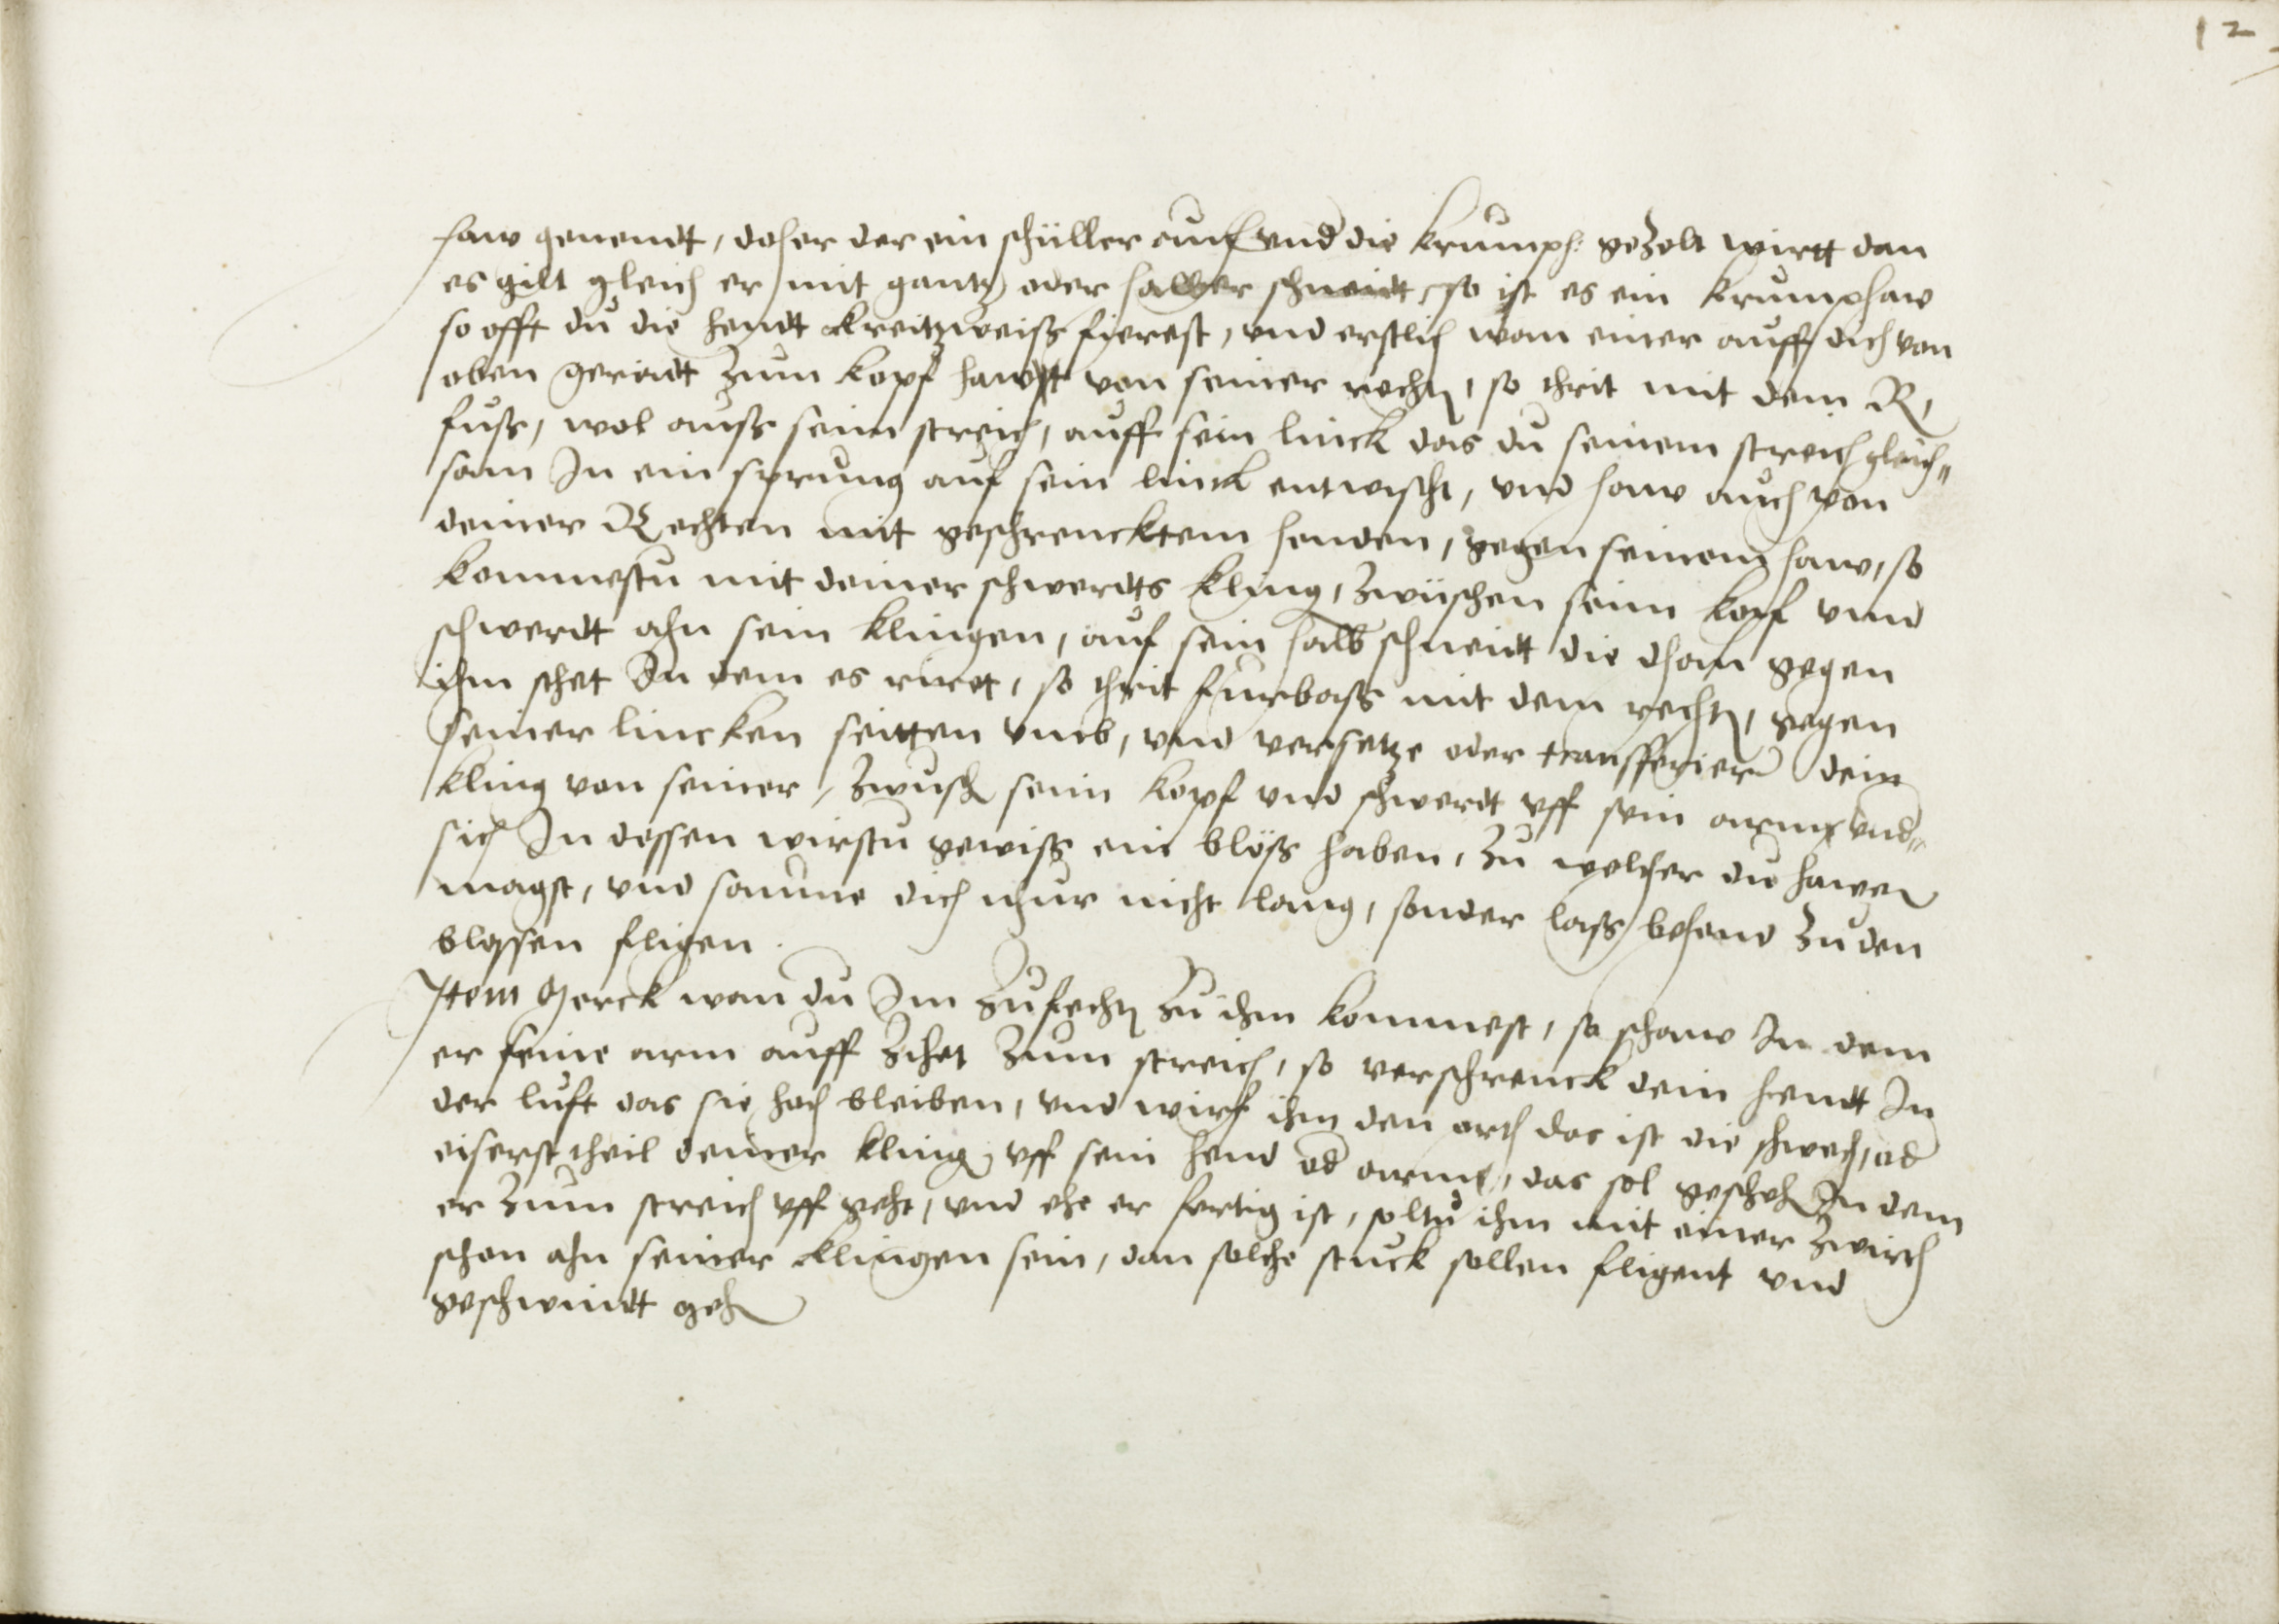 12
haw genendt, daher der ein schüller auch vnd die krumph: gezelt wirtt dan
es gilt gleich er mit gantz oder halber schneidt, so ist es ein krumphaw
so offt du die hendt kreitzweiß fierest, vnd erstlich wan einer auff dich von
oben geradt zum kopf hawtt von seiner rechtn, so thrit mit dem R,
fuß, wol auß seim streich, auff sein linck das du seinem streich gleich„
sam In ein sprung auf sein linck entwischt, vnd haw auch von
deiner Rechten mit geschrencktem henden, gegen seinem haw, so
kommestu mit deiner schwerdts kling, zwüschen seim kopf vnnd
schwerdt ahn sein klingen, auf sein halb schneidt die dham gegen
ihm sehet In dem es riret, so thrit furbaß mit dem rechtn, gegen
seiner lincken seitten vmb, vnd versetze oder transfferier dein
kling von seiner, zwuschn seim kopf vnd schwerdt vff sein armen vnd„
sich In dessen wirstu gewiß ein blöß haben, zu welcher du hawen
magst, vnd saume dich nhur nicht lang, sonder laß behend zu den
blossen fligen.
Item Merck wan du Im zufechtn zu ihm kommest, so schaw In dem
er seine arm auff zihet zum streich, so verschrenck dein hendt In
der luft das sie hoch bleiben, vnd wirf ihm den orth das ist die schwech, od
eiserst theil deiner kling vff sein hend od arme, das sol geschehn In dem
er zum streich vff geht, vnd ehe er fertig ist, soltu ihm mit einer zwirch
schon ahn seiner klingen sein, dan solche stuck sollen fligent vnd
geschwindt gehn